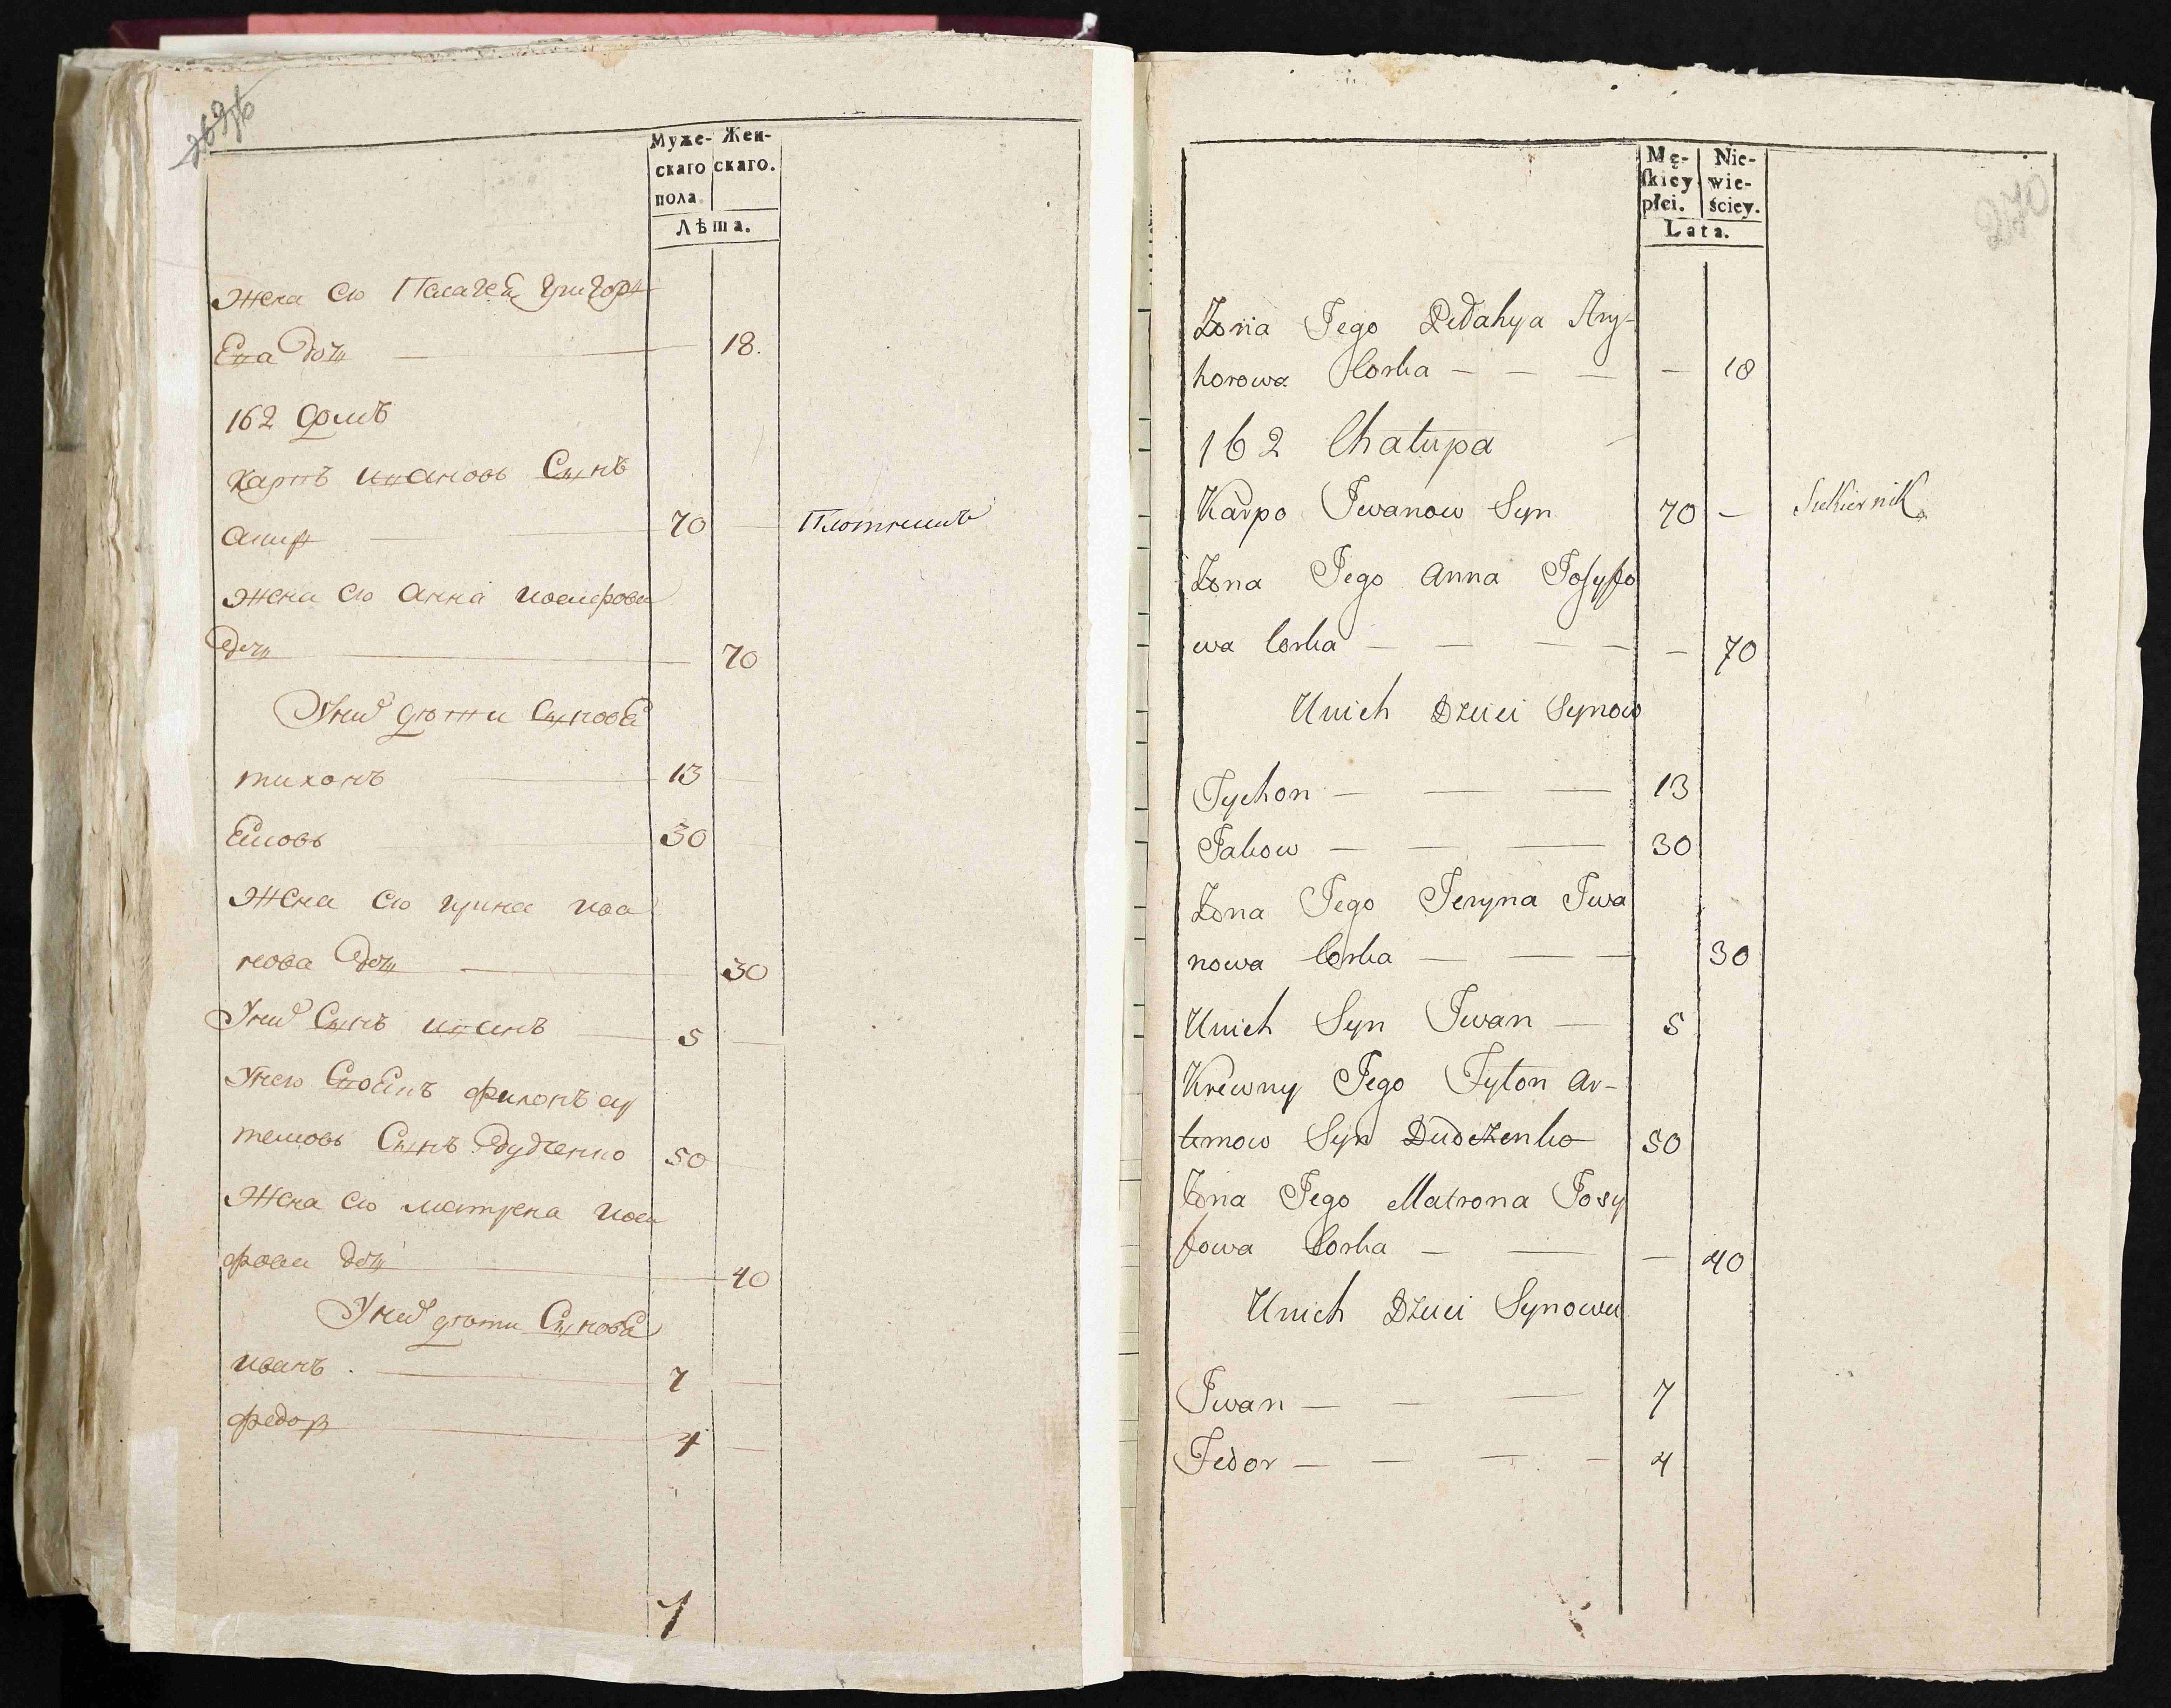 269
Муже-
скаго
пола.
Жен-
скаго.
Лѣта.
Жена его Григор
Ева дочь 18.
162 домъ
Карпъ Ивановъ Сынъ
70
Жена его Анна Иосифова
дочь 70
У них дѣти Сыновя
Тихонъ 13
Яковъ 30
Жена его Ирина Ива
нова дочь 30
У них Сынъ Иванъ 5
У него Филонъ ар
темовъ Сынъ Дудченко 50
Жена его Матрена Иоси
фова дочь 40
У них дѣти Сыновя
Иванъ 7
Федор 4
Mę-
ſkiey
płci.
Nie-
wie-
ściey.
Lata.
Żona Jego Hry-
horowa Corka — — — — 18
162 Chałupa
Karpo Iwanow Syn 70 —
Żona Jego Anna Joſyfo
wa Corka — — — — — 70
Unich Dzieci Synow
Tychon — — — 13
Jakow — — — 30
Żona Jego Jeryna Iwa
nowa Corka — — — 30
Unich Syn Iwan — 5
Krewny Jego Ar-
temow Syn Dudczenko 50
Żona Jego Matrona Josy
fowa Corka — — — 40
Unich Dzieci Synowe
Iwan — — — 7
Fedor — — — — 4